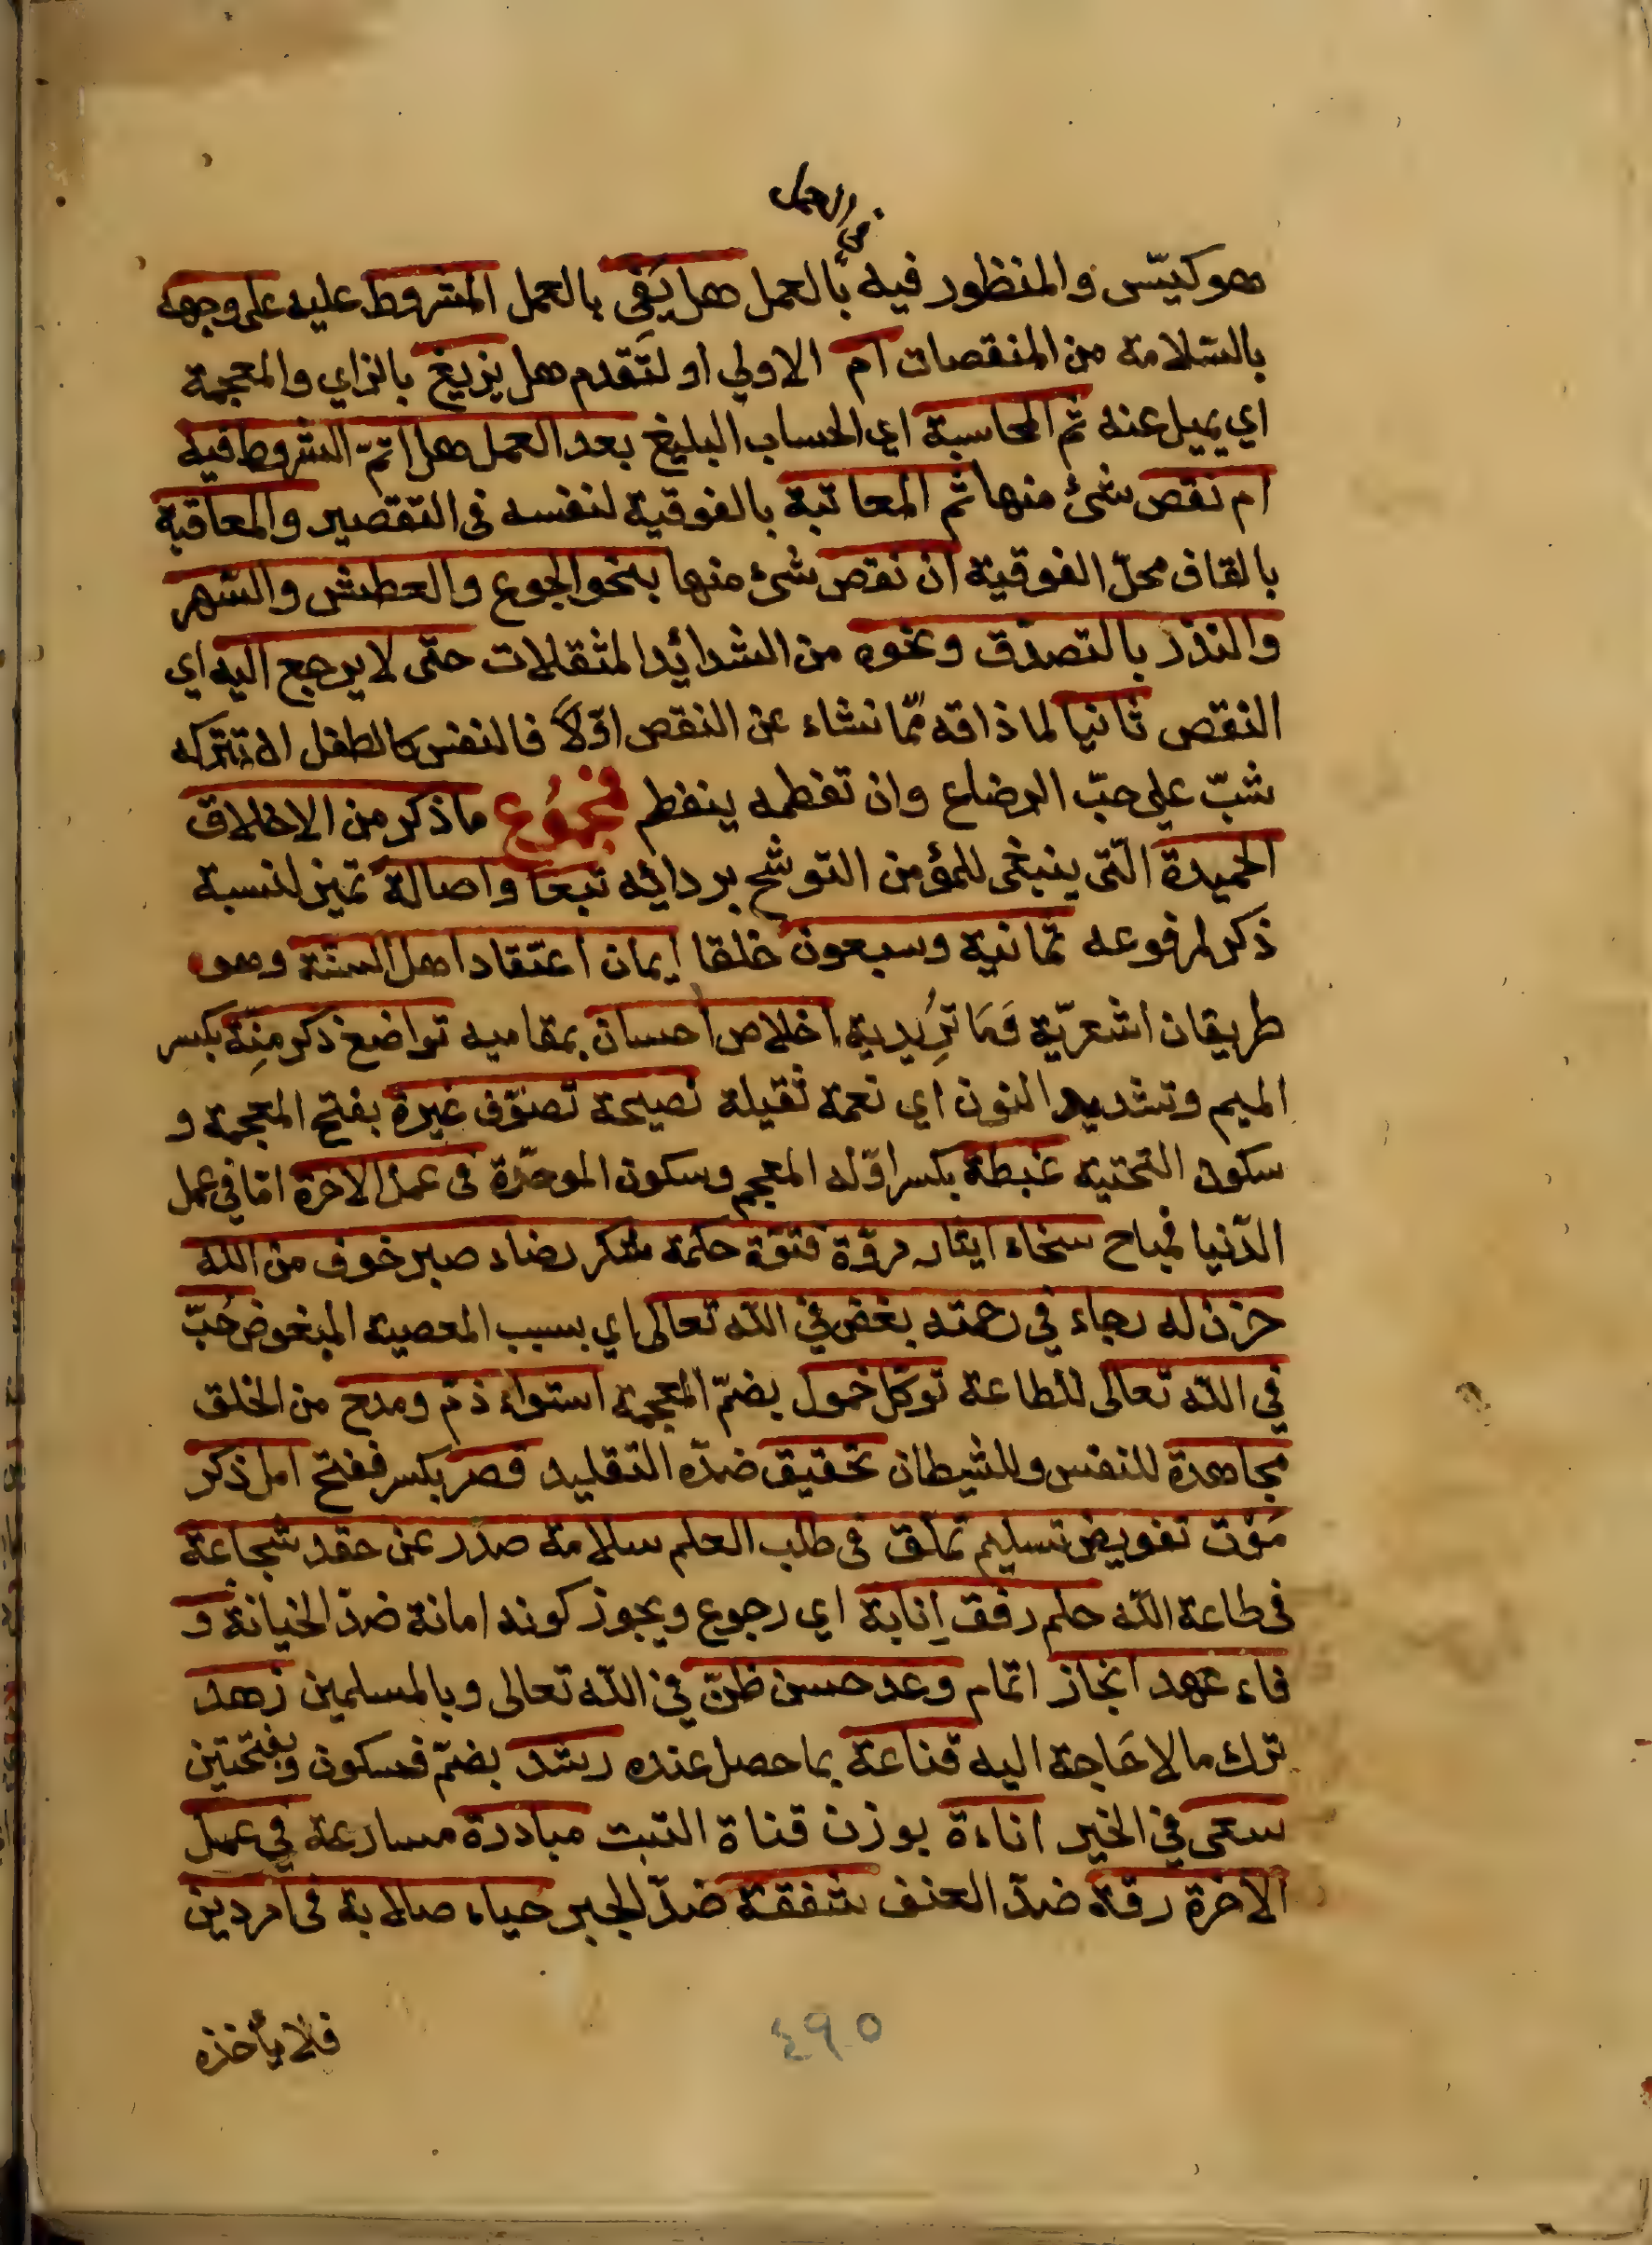 من العمل
هو كيّس والمنظور فيه بالعمل هل يَفِي بالعمل المشروط عليه على وجهه
بالسّلامة من المنقصات ام الاولي او لتقدم هل يزيغ بالزاي والمعجمة
اي يميل عنه ثم المحاسبة اي الحساب البليغ بعد العمل هل اتمّ الشروط فيه
ام نقص شئ منها ثم المعاتبة بالفوقية لنفسه فى التقصير والمعاقبة
بالقاف محلّ الفوقية ان نقص شئ منها بنحو الجوع والعطش والسّهر
والنذر بالتصدّق ونحوه من الشدائد المثقلات حتّى لا يرجع اليه اي
النقص ثانيا لما ذاقه ممّا نشاء عن النقص اوّلاً فالنفس كالطفل ان تتركه
شبّ علي حبّ الرضاع وان تفطمه ينفطم فمجموع ما ذكر من الاخلاق
الحميدة الّتى ينبغى للمؤمن التوشح بردائه تبعا واصالة تميز لنسبة
ذكر لمرفوعه ثمانية وسبعون خلقا ايمان اعتقاد اهل السنّة وهو
طريقان اشعريّة فَمَا تُرِيدية اخلاص احسان بمقاميه تواضع ذكر مِنّة بكسر
الميم وتشديد النون اي نعمة ثقيلة نصيحة تصوّف غيرة بفتح المعجمة و
سكون التحتية غبطة بكسر اوّله المعجم وسكون الموحّدة فى عمل الاخرة امّا في عمل
الدّنيا فمباح سخاء ايثار مروّة فتوّة حكمة شكر رضاء صبر خوف من الله
حزن له رجاء في رحمته بغض في الله تعالى اي بسبب المعصية المبغوض حُبّ
في الله تعالى للطاعة توكّل خمول بضمّ المعجمة استواء ذمّ ومدح من الخلق
مجاهدة للنفس وللشيطان تحقيق ضدّه التقليد قصر بكسر ففتح امل ذكر
مَوْت تفويض تسليم تملّق فى طلب العلم سلامة صدر عن حقد شجاعة
فى طاعة الله حلم رفق إنابة اي رجوع ويجوز كونه امانة ضدّ الخيانة و
فاء عهد انجاز اتمام وعد حسن ظنّ في الله تعالى وبالمسلمين زهد
ترك ما لا حَاجة اليه قناعة بما حصل عنده رشد بضمّ فسكون وبفتحتين
سعى في الخير اناءة بوزن قناة التبت مبادرة مسارعة في عمل
الآخرة رقة ضدّ العنف شفقة ضدّ الجبر حياء صلابة فى امر دين
فلا يأخذه
٤٩٥